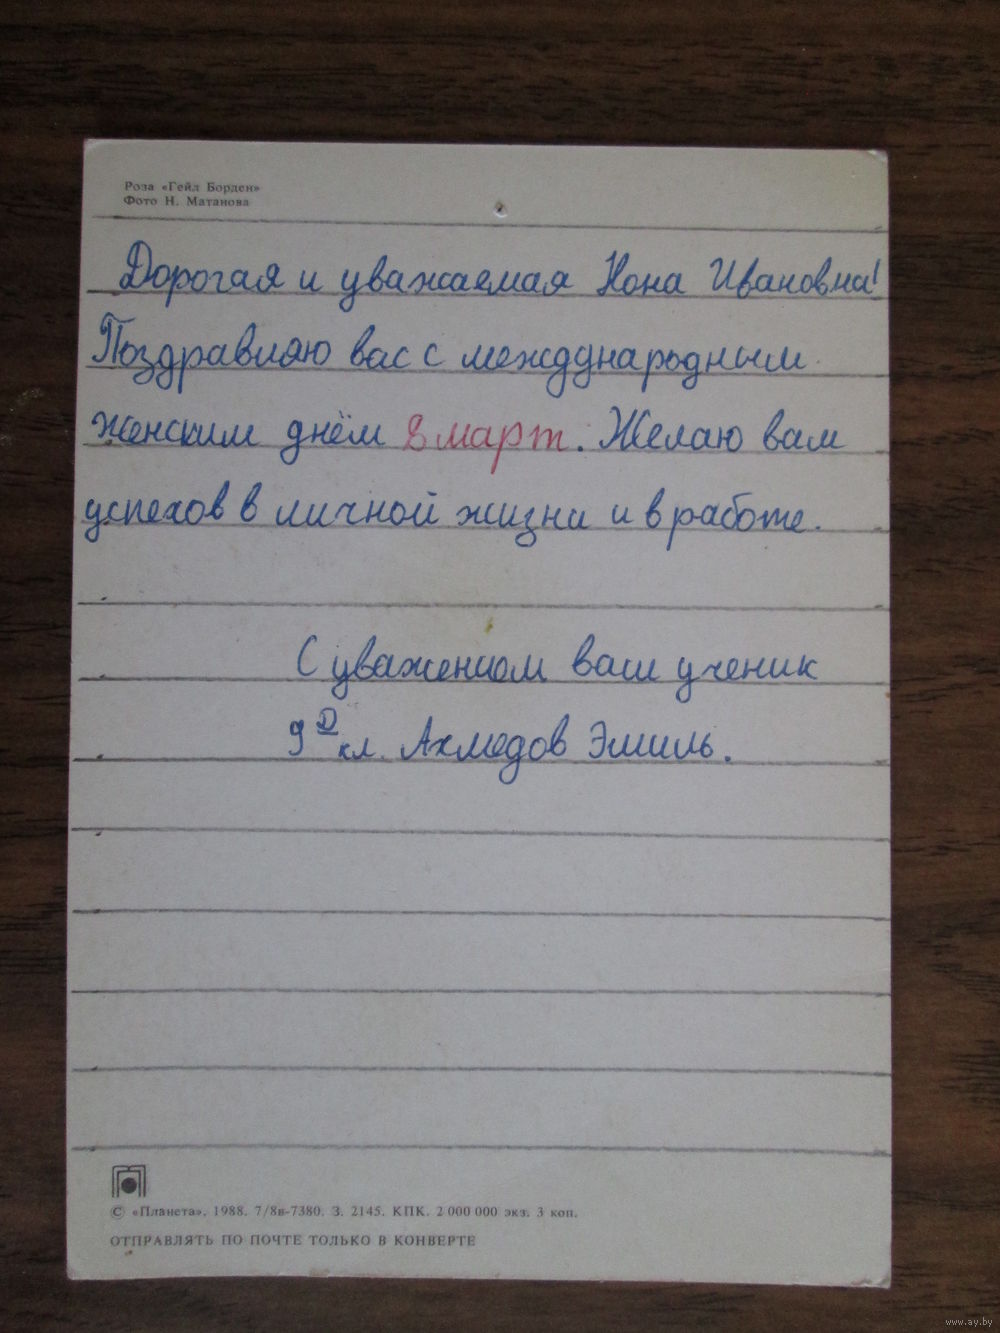 Роза «Гейл Борден»
Фото Н. Матанова
Дорогая и уважаемая Нона Ивановна!
Поздравляю вас с международным
женским днём 8 март. Желаю вам
успехов в личной жизни и в работе.
С уважением ваш ученик
9 Д кл. Ахмедов Эмиль.
© «Планета». 1988. 7/8в-7380. З. 2145. КПК. 2 000 000 экз. 3 коп.
ОТПРАВЛЯТЬ ПО ПОЧТЕ ТОЛЬКО В КОНВЕРТЕ
www.ay.by